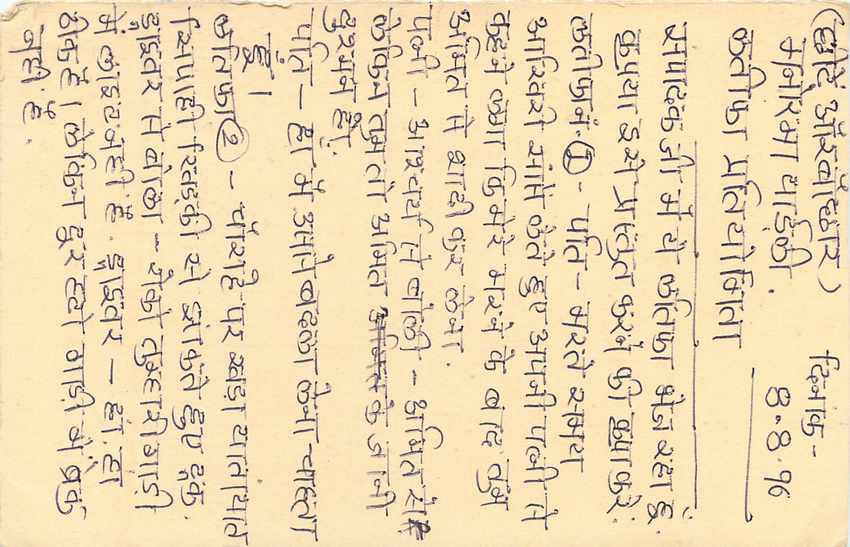 (छोटू और खोखार)
मनोरमा पाड़ेकी.
लतीफा प्रतियोगिता
दिनांक-
8.8.96
सपादक जी मैं ये लतिफा भेज रहा हूं.
कृपया इसे प्रस्तुत करने की कृपा करें.
लतीफा नं. ① - पति - मरते समय
आखिरी सांस लेते हुए अपनी पत्नी से
कहने लगा कि मेरे मरने के बाद तुम
अमित से शादी कर लेना.
पत्नी - आश्चर्य से बोली - अमित से
लेकिन तुम तो अमित के जानी
दुश्मन हो.
पति - हां मैं उससे बदला लेना चाहता
हूँ।
लतिफा ② - चौराहे पर खड़ा यातायात
सिपाही खिड़की से झांकते हुए ट्रक
ड्राइवर से बोला - रोको तुम्हारी गाड़ी
में लाइट नहीं है. ड्राइवर - हां. हां
ठीक है। लेकिन दूर हटो गाड़ी में ब्रेक
नहीं है.